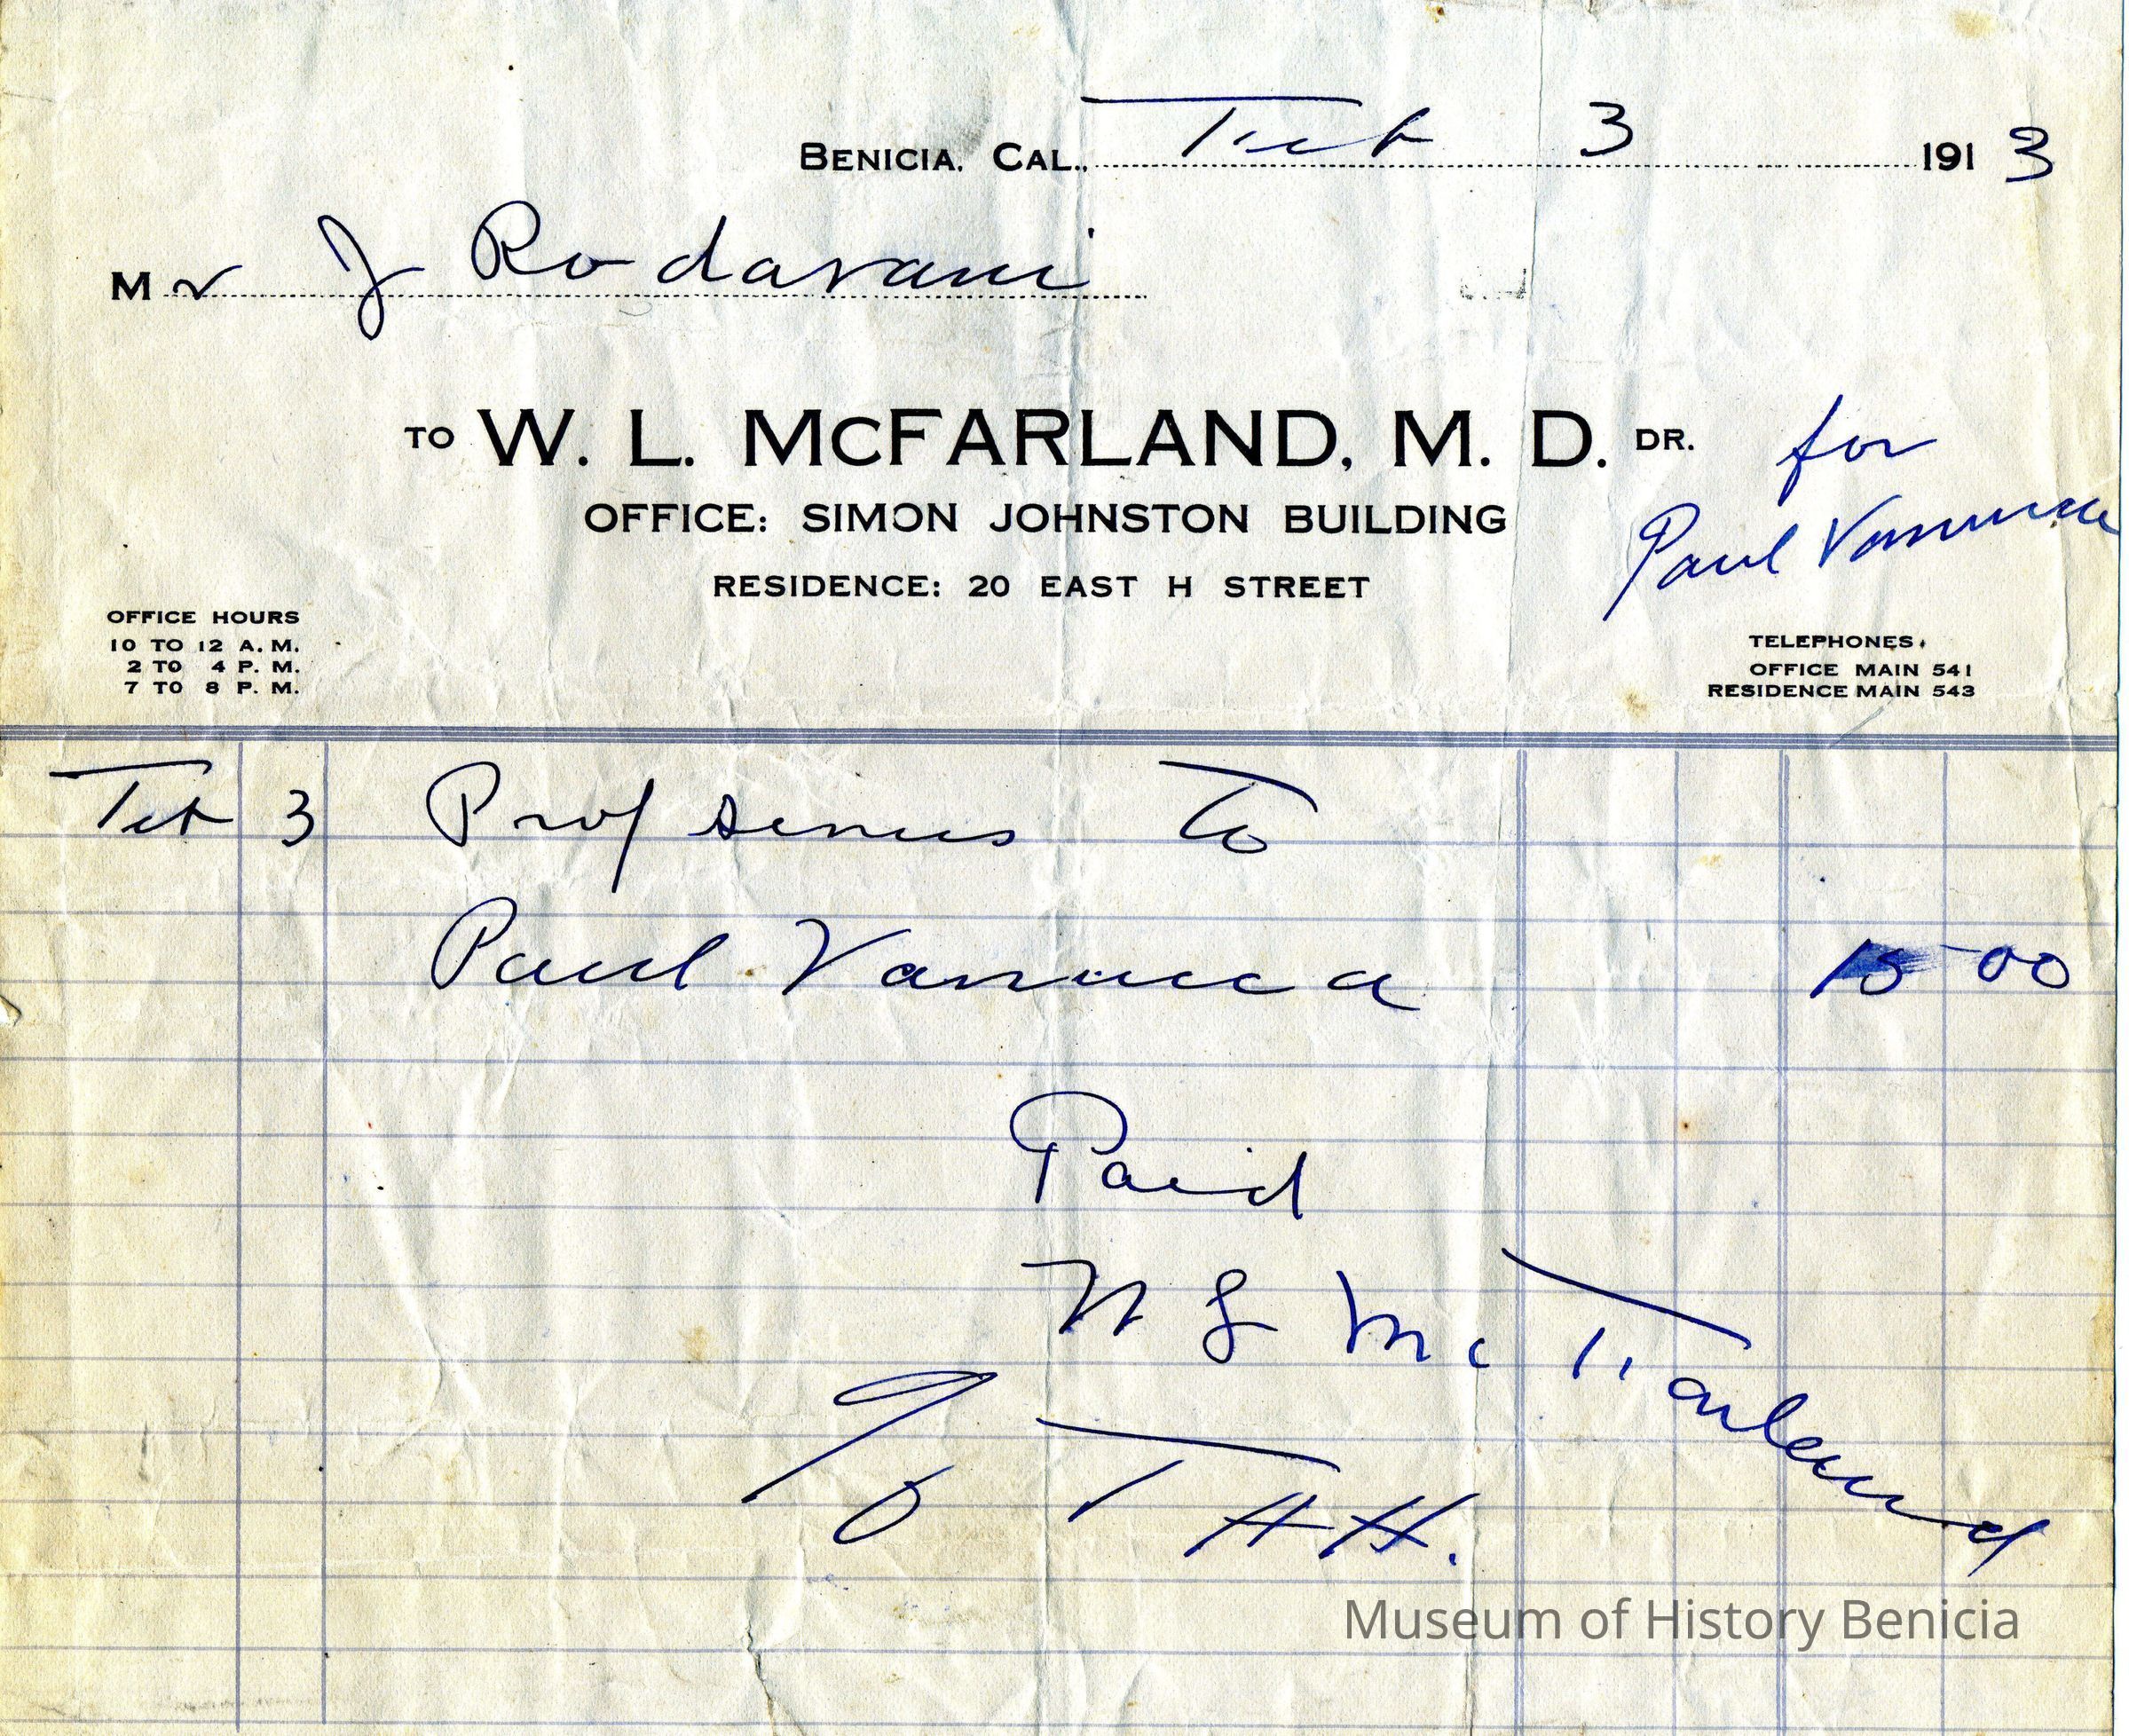 BENICIA, CAL., Feb 3 1913
Mr J Rodavani
TO W. L. McFARLAND, M. D. DR.
for
Paul
OFFICE: SIMON JOHNSTON BUILDING
RESIDENCE: 20 EAST H STREET
OFFICE HOURS
10 TO 12 A. M.
2 TO 4 P. M.
7 TO 8 P. M.
TELEPHONES
OFFICE MAIN 541
RESIDENCE MAIN 543
Feb 3 Prof services To
Paul Vanucca 15 00
Paid
W L McFarland
H.
Museum of History Benicia